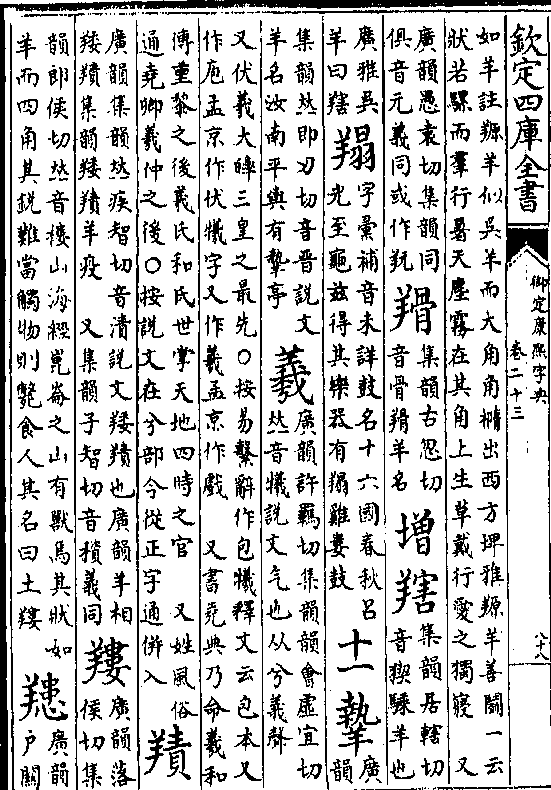 欽定四庫全書
御定康熙字典
卷二十三
八十八
如羊註羱羊似吳羊而大角角橢出西方埤雅羱羊善鬪一云
狀若驢而羣行暑天塵霧在其角上生草戴行愛之獨寢 又
廣韻愚袁切集韻同
俱音元義同或作羦
䯇
集韻古忽切
音骨䯇羊名
增
羍
集韻居轄切
音𥞩騬羊也
廣雅吳
羊曰羍
𦑣
字彙補音未詳鼓名十六國春秋呂
光至龜兹得其樂器有𦑣雞婁鼓
十一
䥍
廣
韻
集韻𠀤即刃切音晉說文
羊名汝南平輿有䥍亭
羲
廣韻許羈切集韻韻會虛宜切
𠀤音犧說文气也从兮義聲
又伏羲大皥三皇之最先○按易繫辭作包犧釋文云包本又
作庖孟京作伏犧字又作羲孟京作戲 又書堯典乃命羲和
傳重黎之後羲氏和氏世掌天地四時之官 又姓風俗
通堯卿羲仲之後○按說文在兮部今從正字通併入
羵
廣韻集韻𠀤疾智切音漬說文羵也廣韻羊相
羵集韻羵羊疫 又集韻子智切音積義同
䍣
廣韻落
侯切集
韻郎侯切𠀤音樓山海經崑崙之山有獸焉其狀如
羊而四角其銳難當觸物則斃食人其名曰土䍣
廣韻
戶關